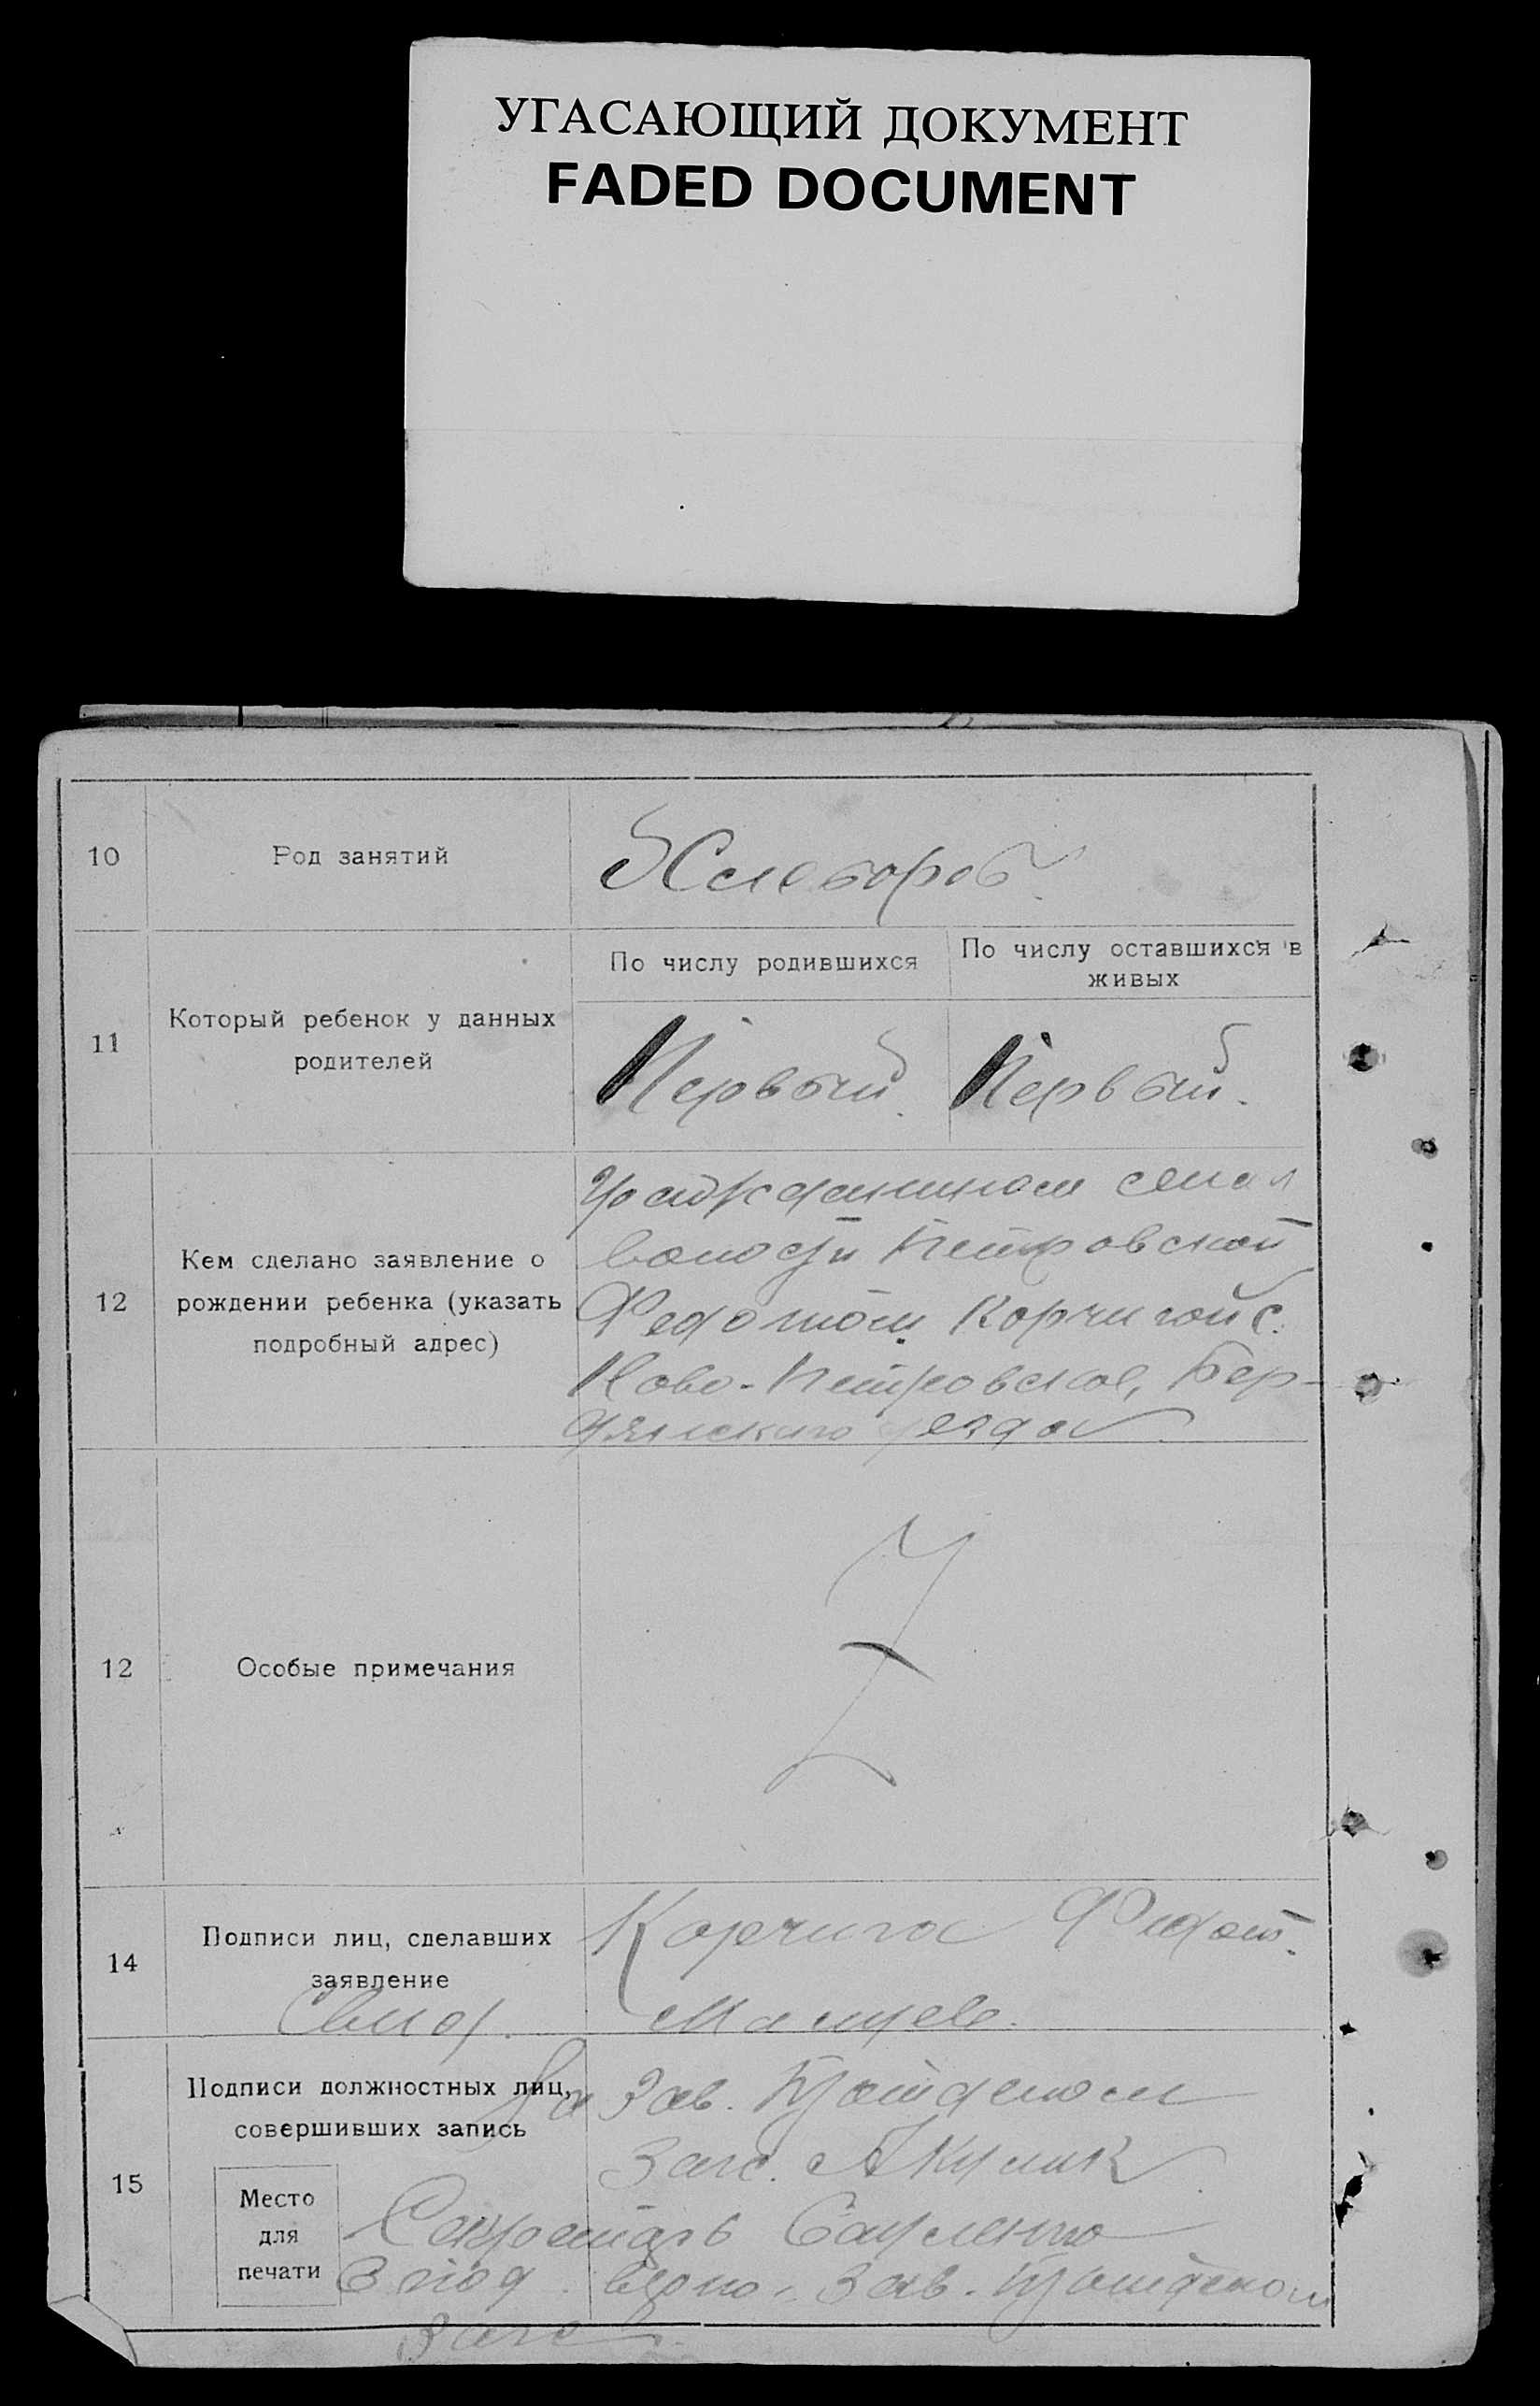 УГАСАЮЩИЙ ДОКУМЕНТ
FADED DOCUMENT
10
Род занятий
Хлебороб
11
Который ребенок у данных
родителей
По числу родившихся
По числу оставшихся в
живых
Первый
Первый.
12
Кем сделано заявление о
рождении ребенка (указать
подробный адрес)
Гражданином села и
волости Петровской
Федотом Корчигой с.
Ново-Петровское, Бер-
дянского уезда
12
Особые примечания
14
Подписи лиц, сделавших
заявление
Корчига Федот.
15
Подписи должностных лиц,
совершивших запись
За Зав.
Загс.
Место
для
печати
Секретарь
верно: Зав.
Загс